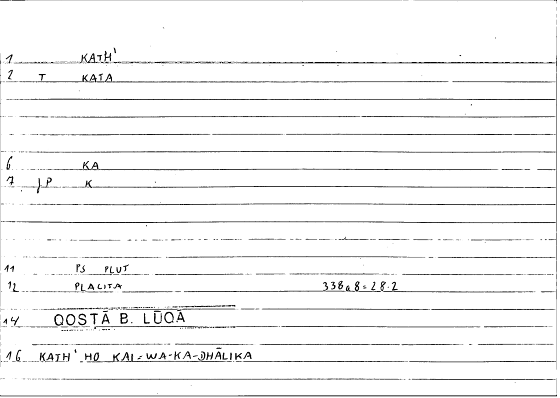 1 KATH'
2 T KATA
6 KA
7 P K
11 PS PLUT
12 PLACITA 338a8=28.2
14 QOSTĀ B. LŪQĀ
16 KATH' HO KAI=WA-KA-DHĀLIKA